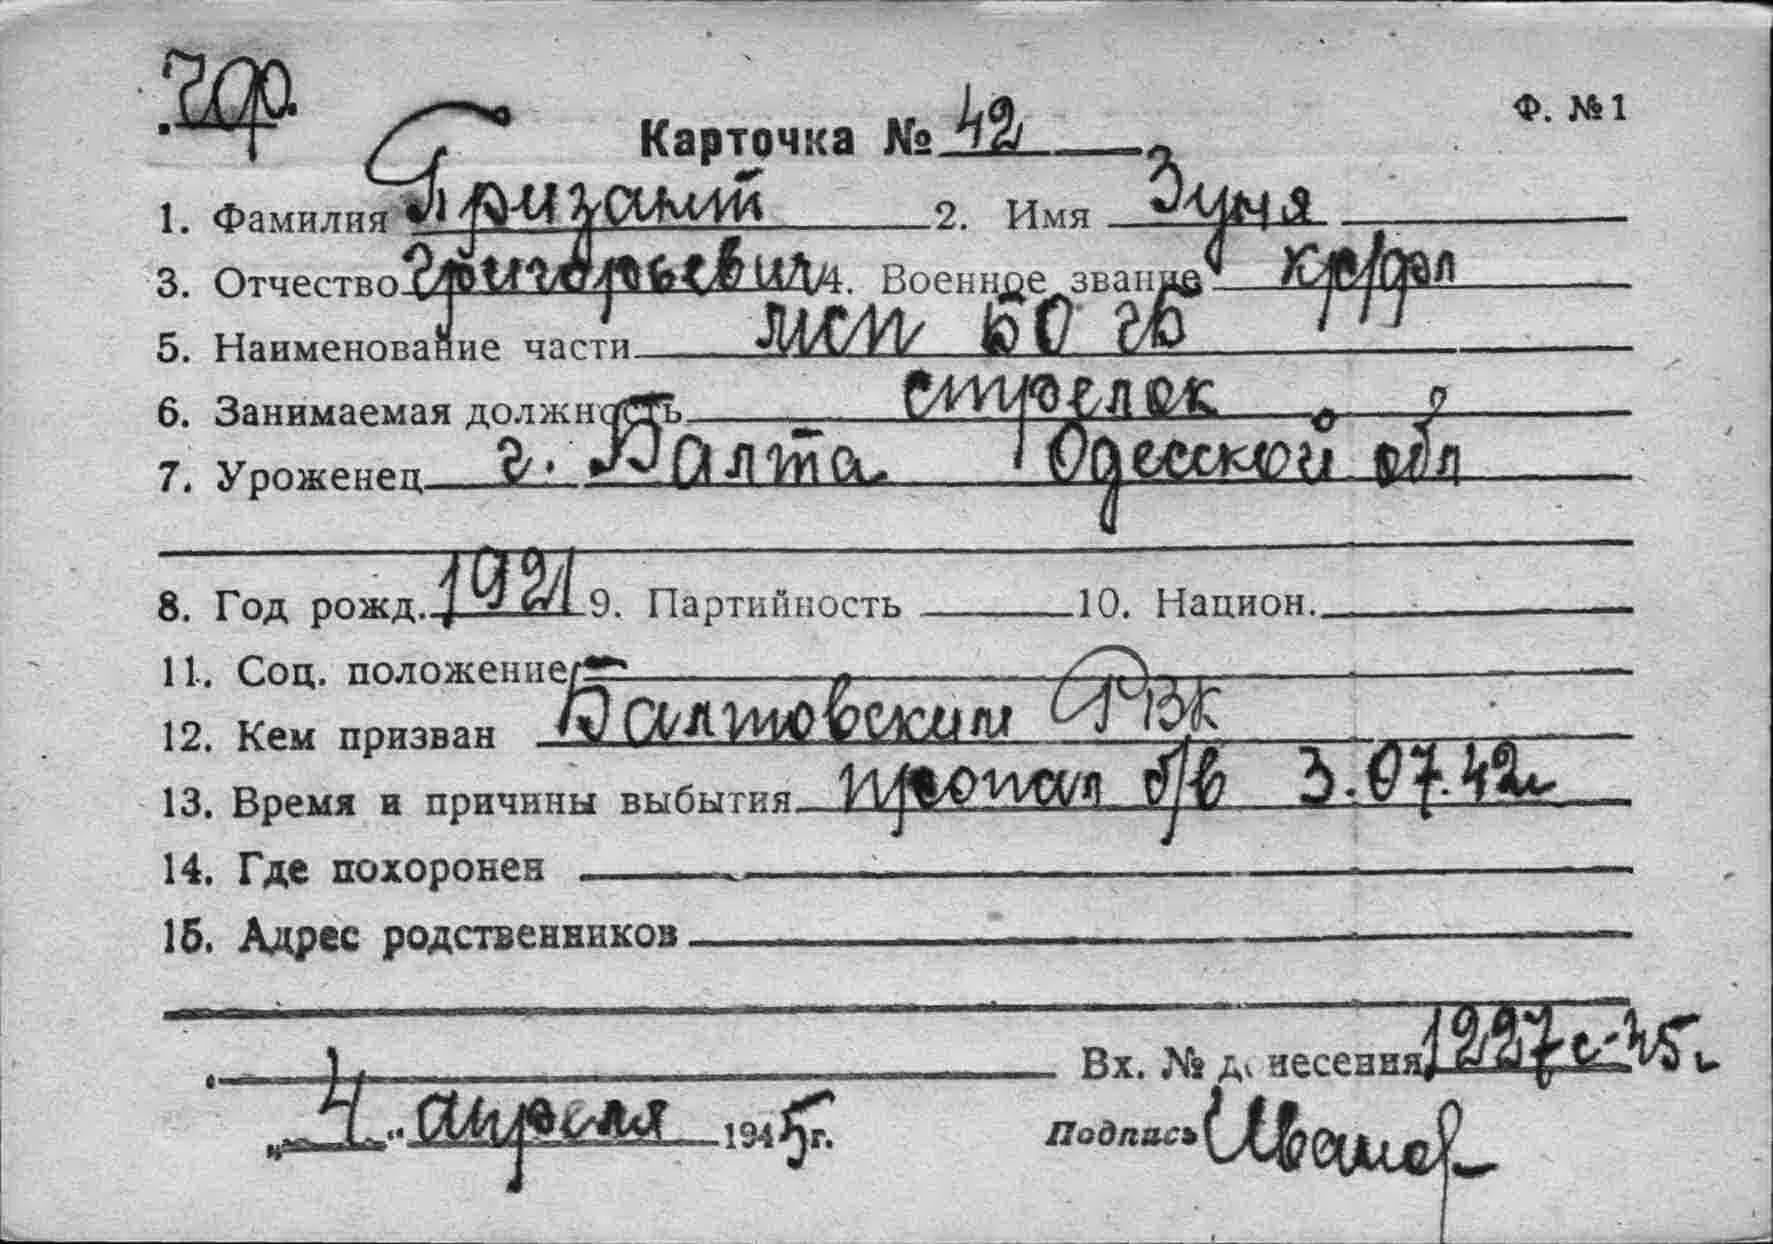 Ф. №1
Карточка № 42
1. Фамилия Гризант 2. Имя Зуня
3. Отчество Григорьевич 4. Военное звание кр/фл
5. Наименование части мсп 50 гб
6. Занимаемая должность стрелок
7. Уроженец г. Балта Одесской обл
8. Год рожд. 1921 9. Партийность 10. Национ.
11. Соц. положение
12. Кем призван Балтовским РВК
13. Время и причины выбытия пропал б/в 3.07.42г
14. Где похоронен
15. Адрес родственников
Вх. № донесения 1227с-45г
„4“ апреля 1945г. Подпись Иванов